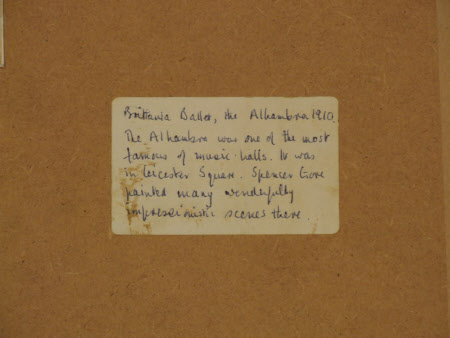 Brittania Ballet, the Alhambra 1910.
The Alhambra was one of the most
famous of music-halls. It was
in Leicester Square. Spencer Gore
painted many wonderfully
impressionistic scenes there.